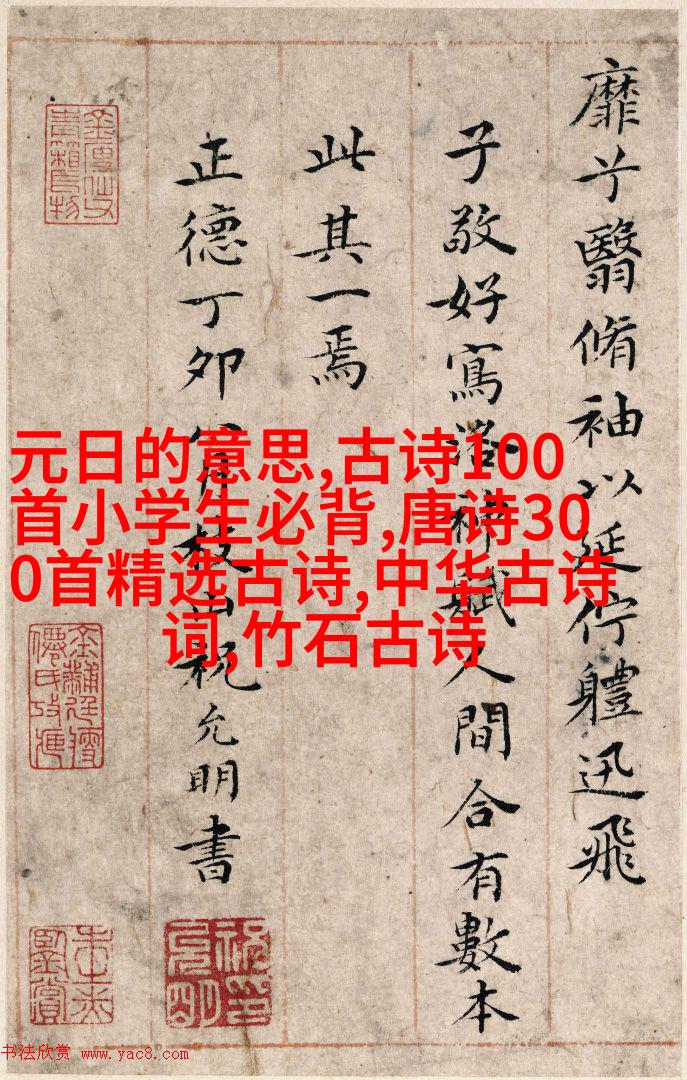 靡兮翳脩袖以延佇體迅飛
子敬好寫洛神賦人間合有數本
此其一焉
正德丁卯八月枝山祝允明書
元日的意思,古诗100
首小学生必背,唐诗30
0首精选古诗,中华古诗
词,竹石古诗
书法欣赏 www.yac8.com